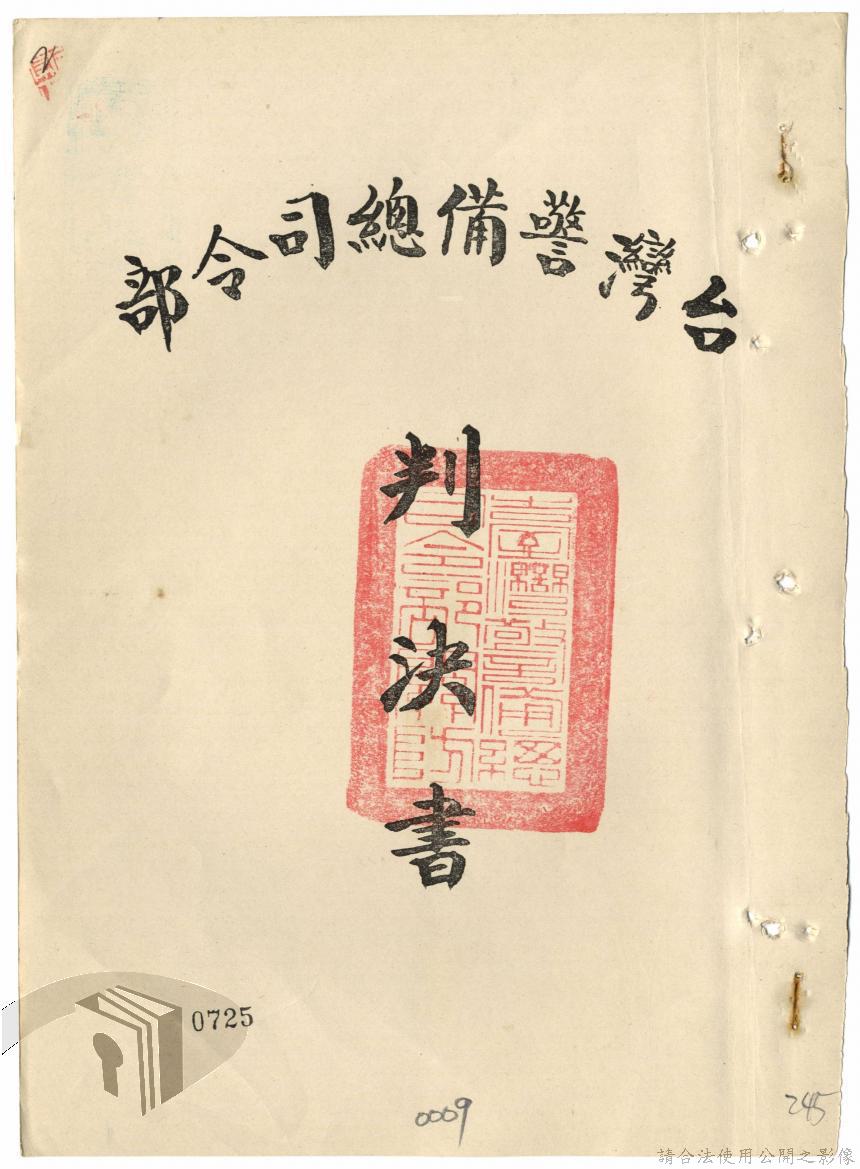 台灣警備總司令部
判決書
臺灣警備總
司令部關防
0725
0009
245
請合法使用公開之影像